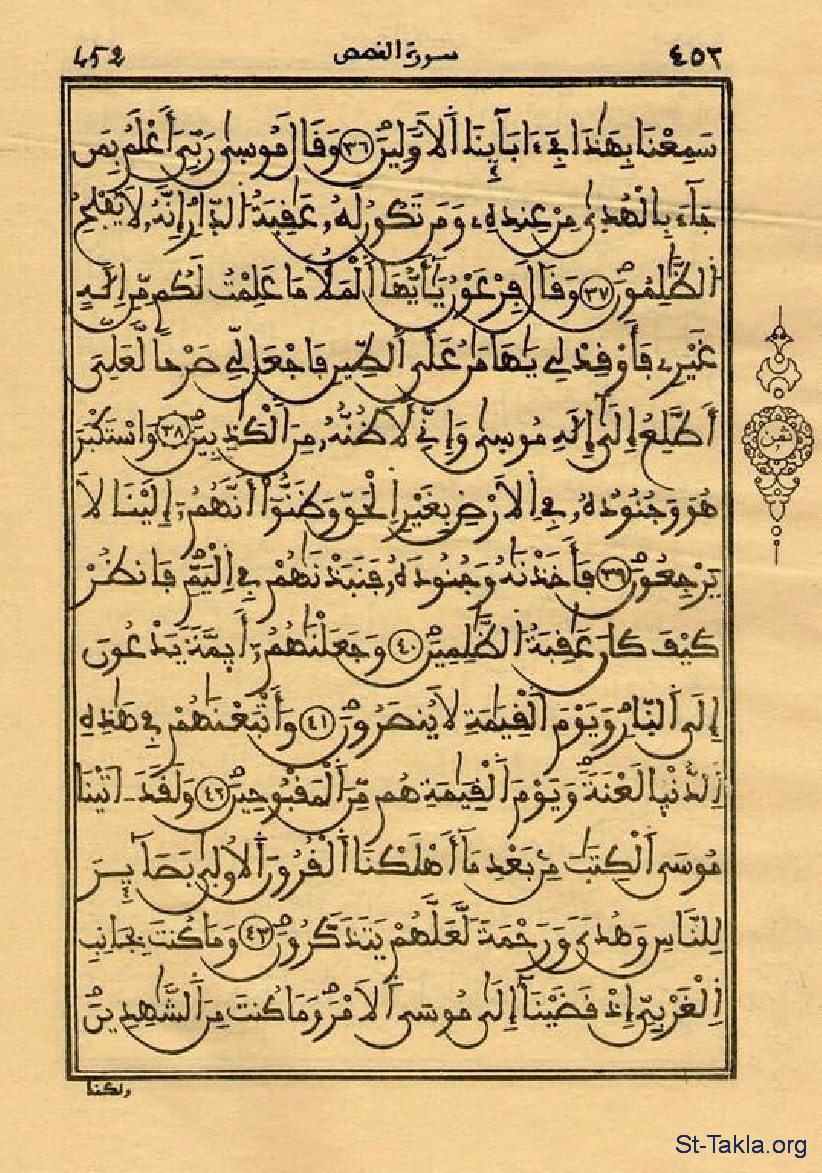 452 سورة القصص ٤٥٢
سَمِعْنَا بِهَٰذَا فِےٓ ءَابَآئِنَا اَ۬لَاوَّلِينَۖ ٣٦ وَقَالَ مُوس۪ىٰ رَبِّيَ أَعْلَمُ بِمَن
جَآءَ بِالْهُد۪ىٰ مِنْ عِندِهِۦ وَمَن تَكُونُ لَهُۥ عَٰقِبَةُ اُ۬لدّ۪ارِ إِنَّهُۥ لَا يُفْلِحُ
اُ۬لظَّٰلِمُونَۖ ٣٧ وَقَالَ فِرْعَوْنُ يَٰٓأَيُّهَا اَ۬لْمَلَأُ مَا عَلِمْتُ لَكُم مِّنِ اِلَٰهٍ
غَيْرِے فَأَوْقِدْ لِے يَٰهَٰمَٰنُ عَلَى اَ۬لطِّينِ فَاجْعَل لِّے صَرْحاٗ لَّعَلِّيَ
أَطَّلِعُ إِلَىٰٓ إِلَٰهِ مُوس۪ىٰ وَإِنِّے لَأَظُنُّهُۥ مِنَ اَ۬لْكَٰذِبِينَۖ ٣٨ وَاسْتَكْبَرَ
هُوَ وَجُنُودُهُۥ فِے اِ۬لَارْضِ بِغَيْرِ اِ۬لْحَقِّ وَظَنُّوٓاْ أَنَّهُمُۥٓ إِلَيْنَا لَا
يَرْجِعُونَۖ ٣٩ فَأَخَذْنَٰهُ وَجُنُودَهُۥ فَنَبَذْنَٰهُمْ فِے اِ۬لْيَمِّۖ فَانظُرْ
كَيْفَ كَانَ عَٰقِبَةُ اُ۬لظَّٰلِمِينَۖ ٤٠ وَجَعَلْنَٰهُمُۥٓ أَئِمَّةٗ يَدْعُونَ
إِلَى اَ۬لنّ۪ارِۖ وَيَوْمَ اَ۬لْقِيَٰمَةِ لَا يُنصَرُونَۖ ٤١ وَأَتْبَعْنَٰهُمْ فِے هَٰذِهِ
اِ۬لدُّنْي۪ا لَعْنَةٗۖ وَيَوْمَ اَ۬لْقِيَٰمَةِ هُم مِّنَ اَ۬لْمَقْبُوحِينَۖ ٤٢ وَلَقَدَ اٰتَيْنَا
مُوسَى اَ۬لْكِتَٰبَ مِنۢ بَعْدِ مَآ أَهْلَكْنَا اَ۬لْقُرُونَ اَ۬لُاول۪ىٰ بَصَآئِرَ
لِلنَّاسِ وَهُدىٗ وَرَحْمَةٗ لَّعَلَّهُمْ يَتَذَكَّرُونَۖ ٤٣ وَمَا كُنتَ بِجَانِبِ
اِ۬لْغَرْبِيِّ إِذْ قَضَيْنَآ إِلَىٰ مُوسَى اَ۬لَامْرَۖ وَمَا كُنتَ مِنَ اَ۬لشَّٰهِدِينَۖ
ثمن
ولكنا
St-Takla.org